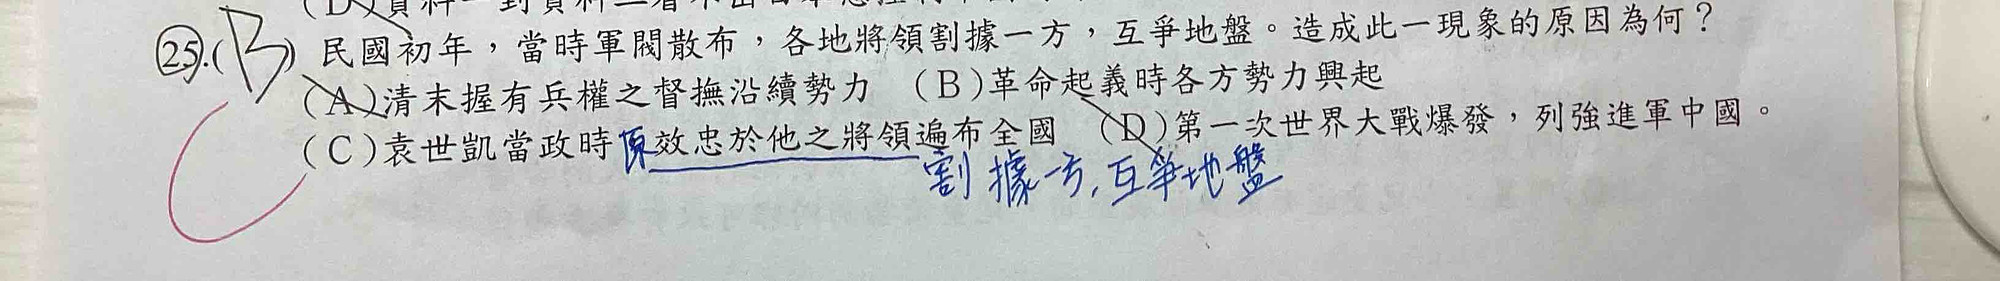 ㉕.(B) 民國初年，當時軍閥散布，各地將領割據一方，互爭地盤。造成此一現象的原因為何？
(A)清末握有兵權之督撫沿續勢力 (B)革命起義時各方勢力興起
(C)袁世凱當政時原效忠於他之將領遍布全國 (D)第一次世界大戰爆發，列強進軍中國。
割據一方，互爭地盤